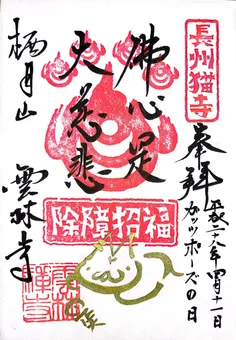 長州猫寺
奉拝
平成二十八年四月十一日
ガッツポーズの日
佛心足
大慈悲
福招障除
栖月山
雲林寺